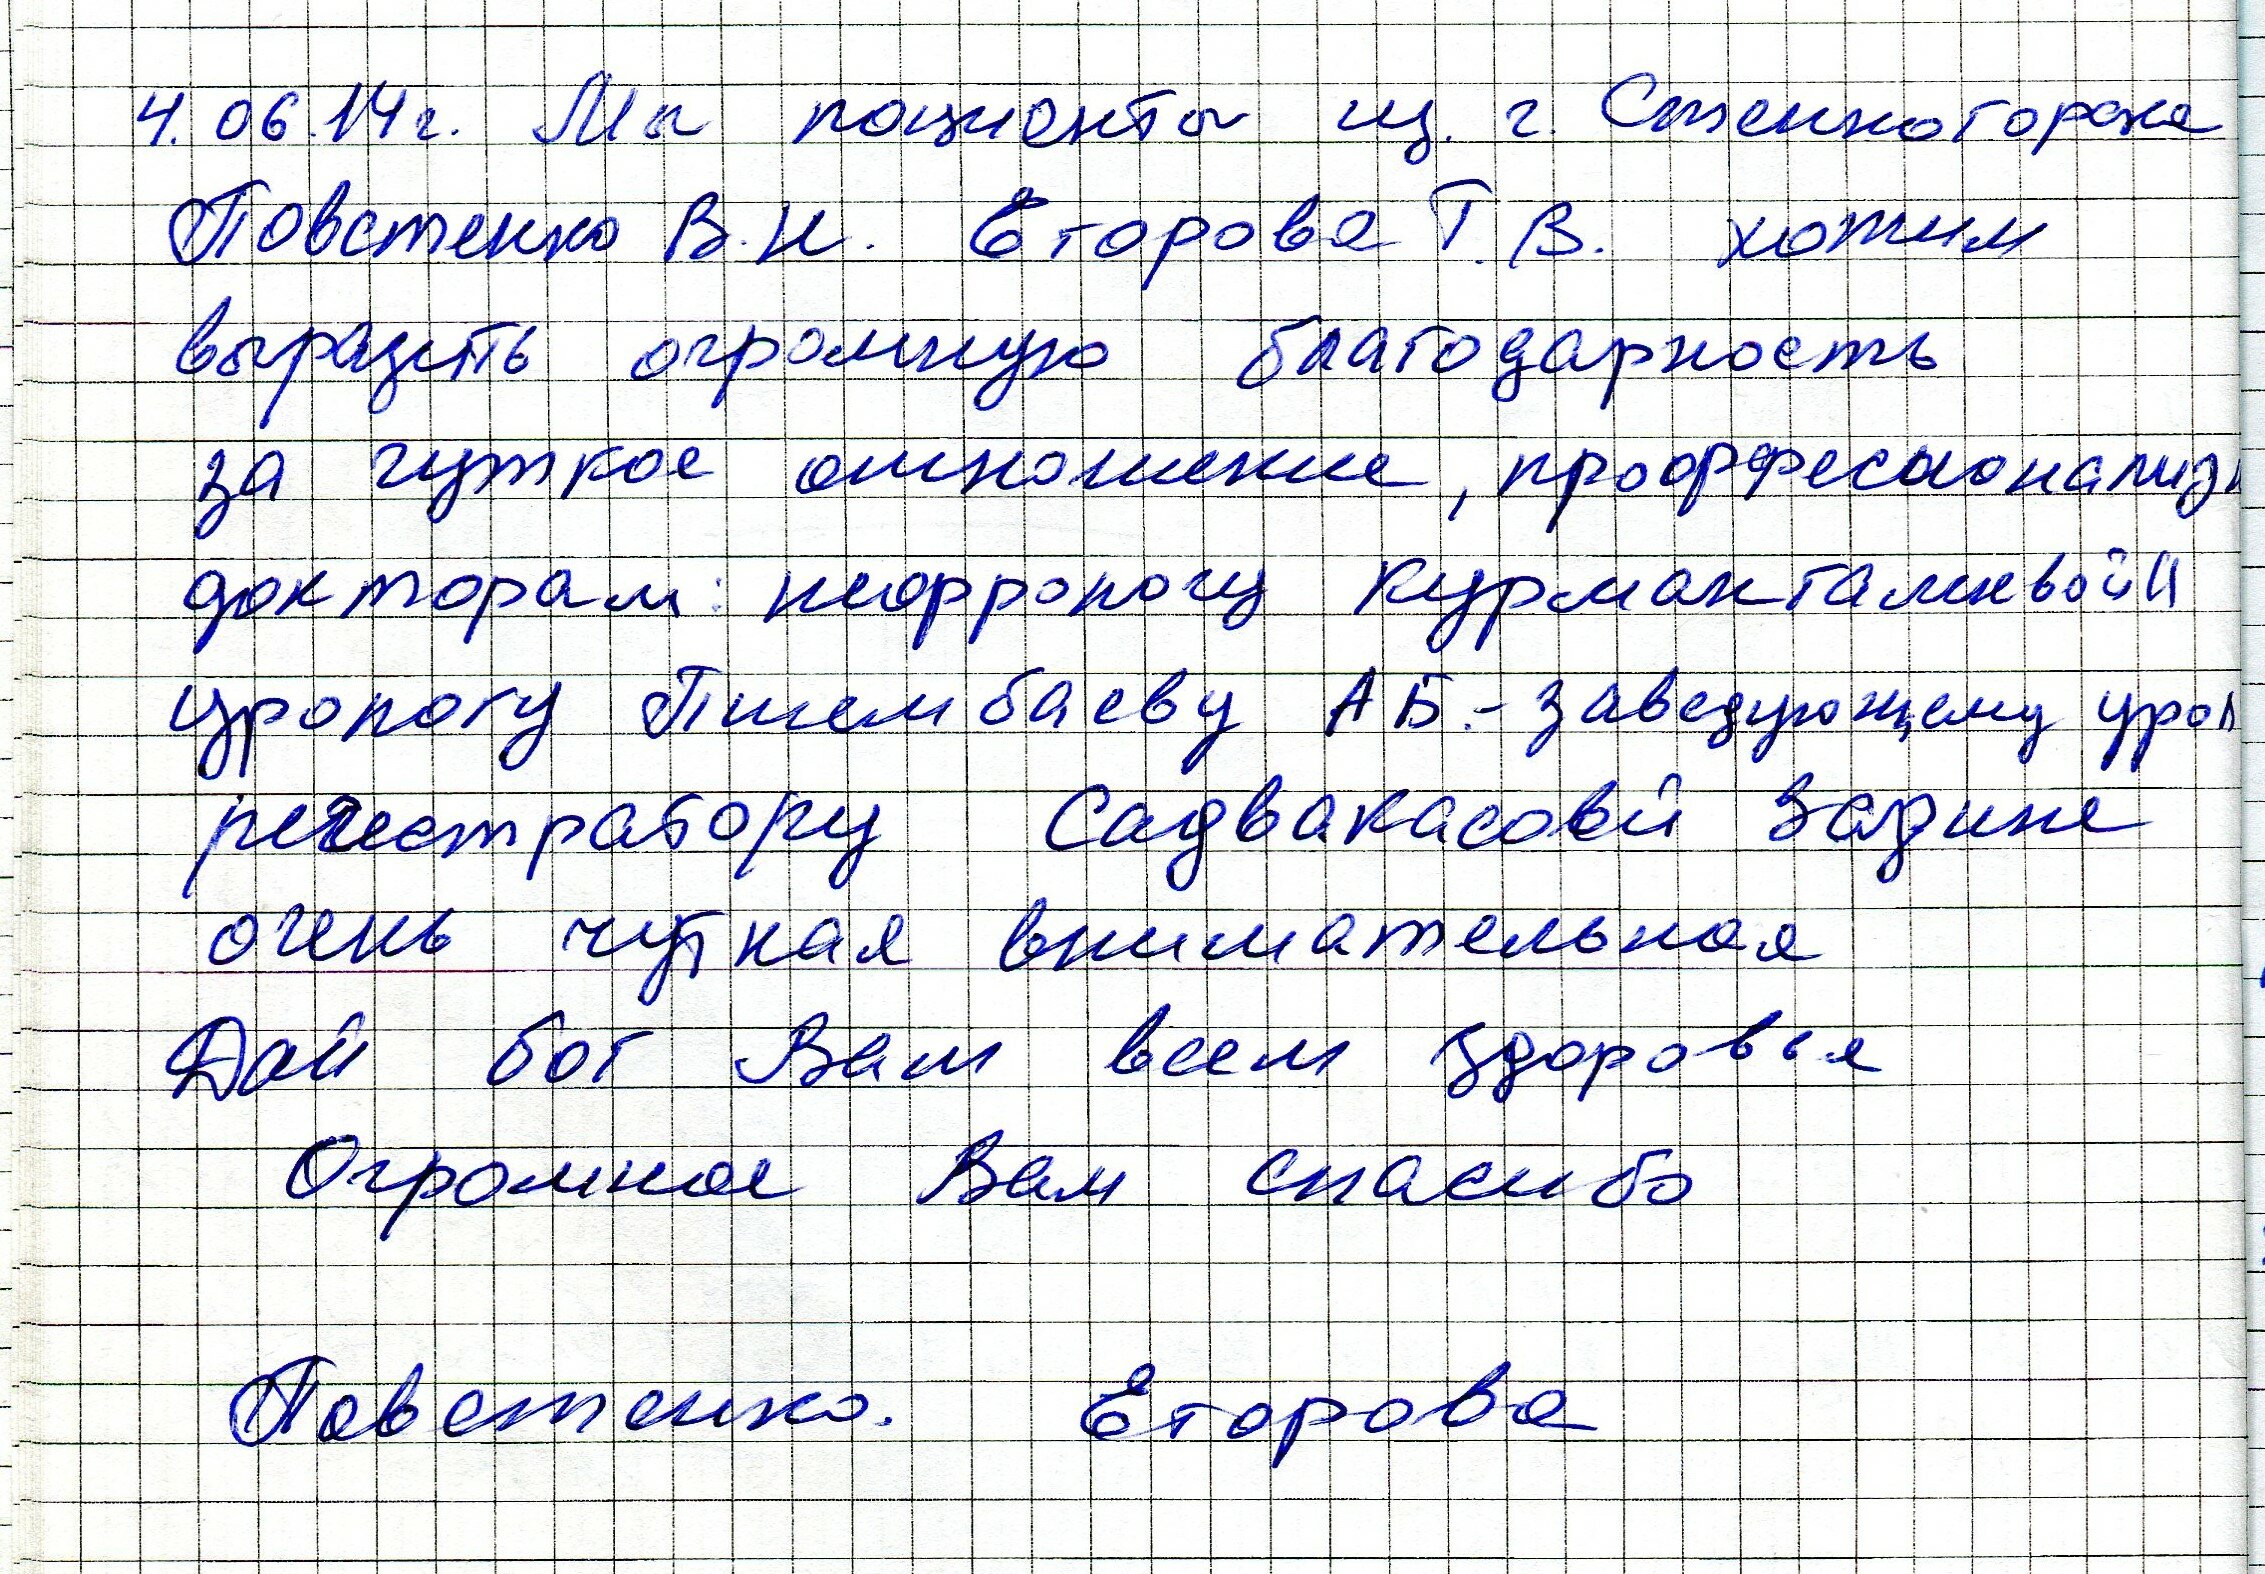 4.06.14г. Мы пациенты из. г. Степногорска
Повстенко В.Н. Егорова Т.В. хотим
выразить огромную благодарность
за чуткое отношение, профессионализм
докторам: нефрологу Курманталиевой
урологу Пшембаеву АБ.- заведующему урол
регестратору Садвакасовй Вазине
очень чуткая внимательная
Дай бог Вам всем здоровья
Огромное Вам спасибо
Повстенко. Егорова